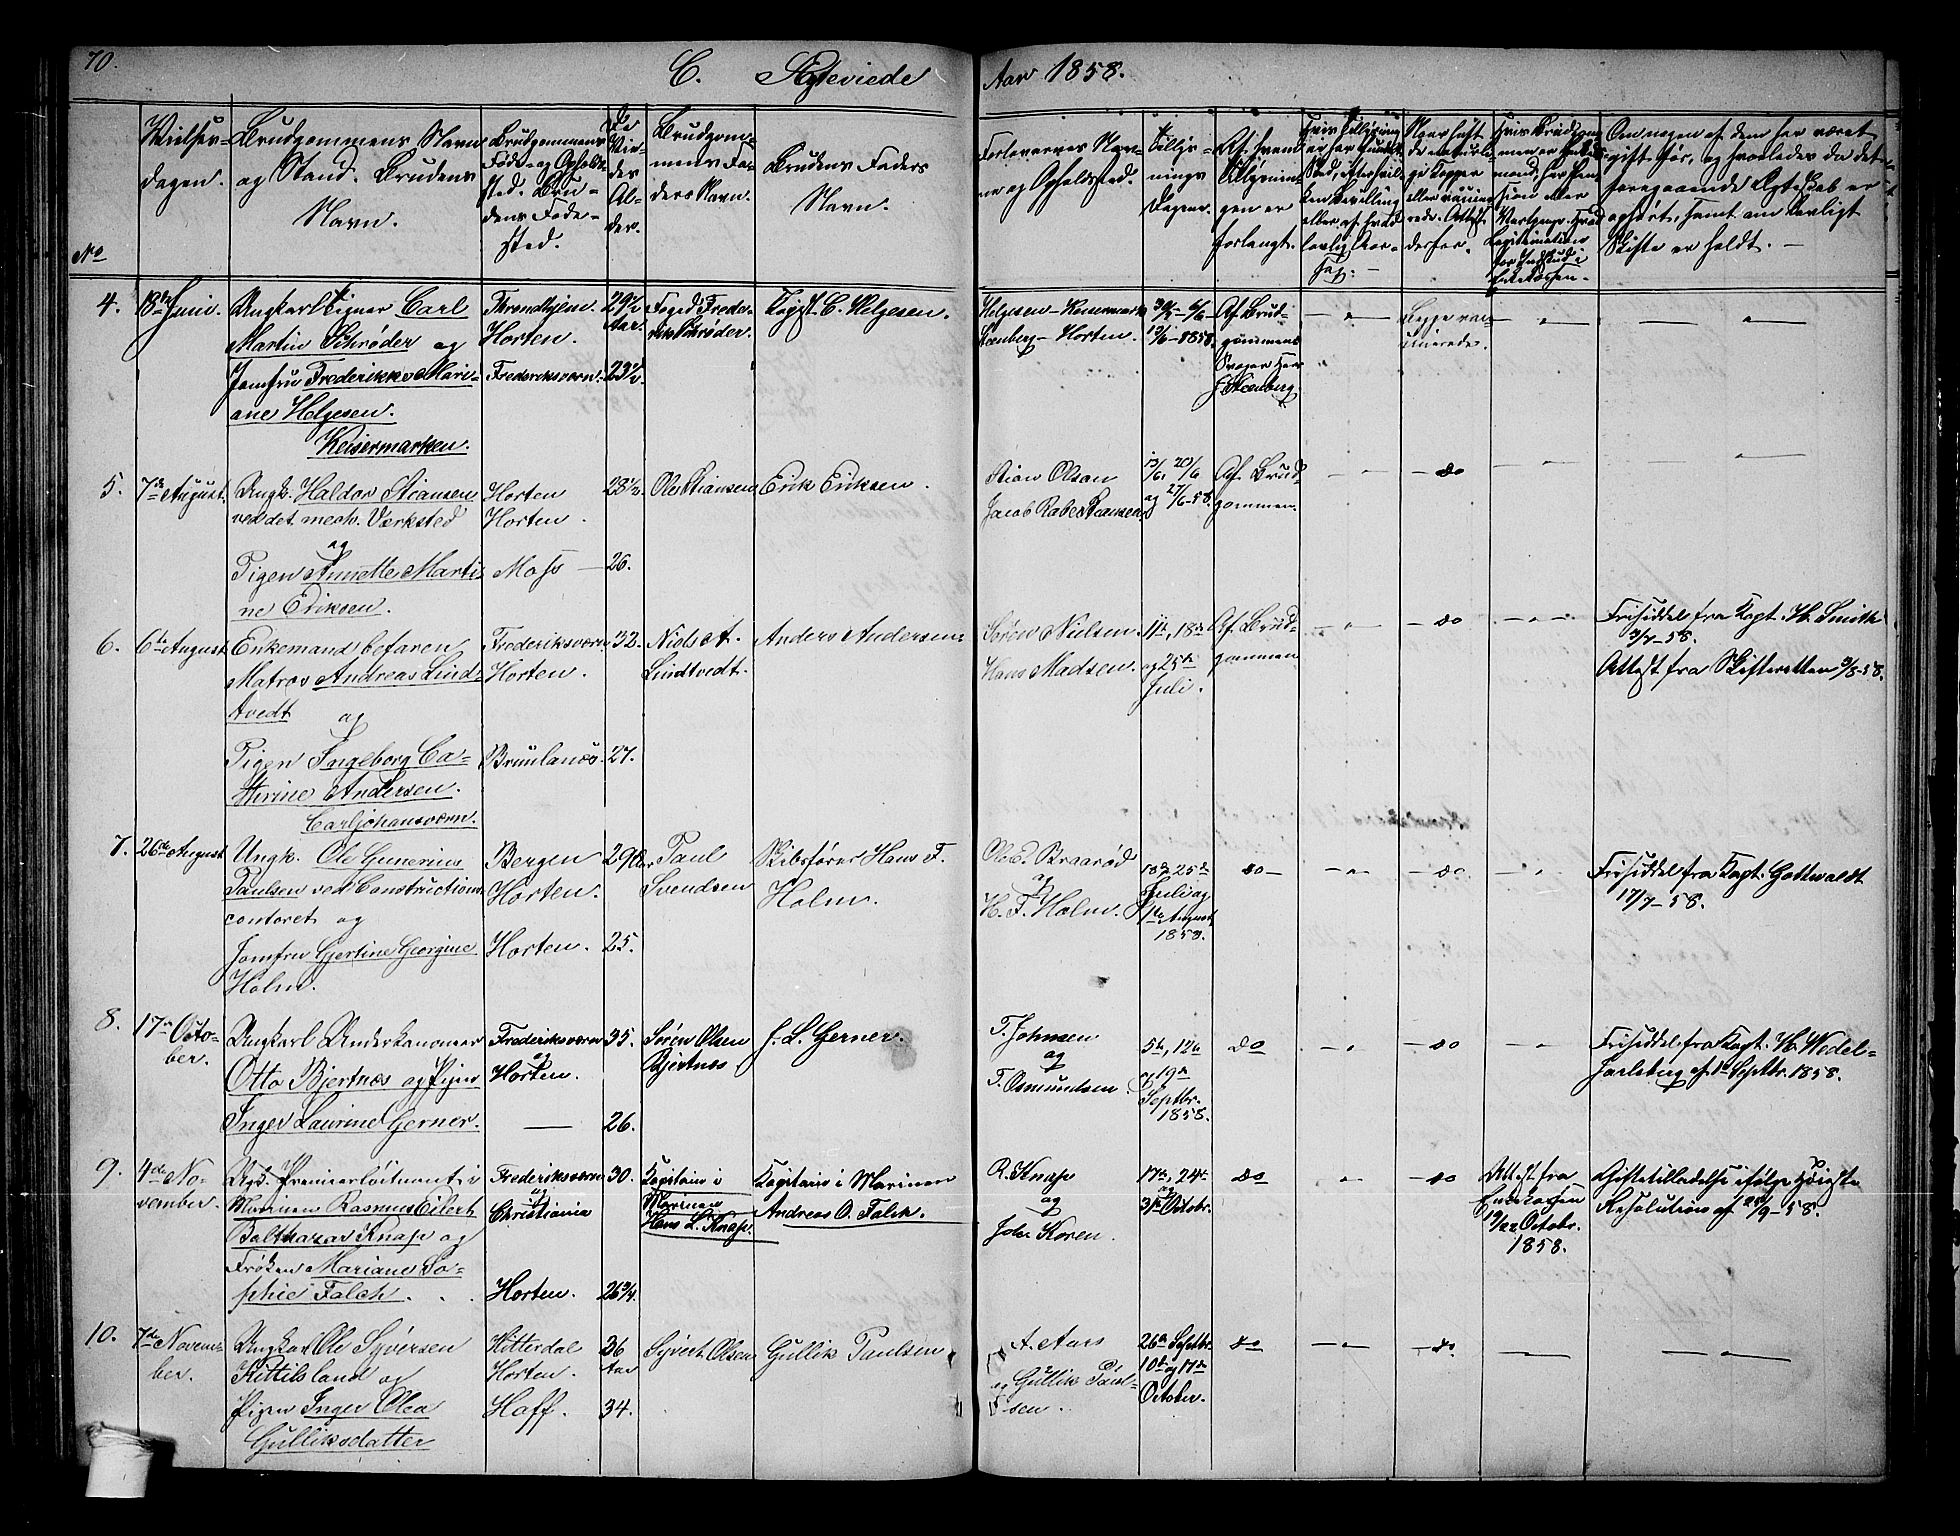 70.
C. Ægteviede
Aar 1858.
No
Vielses-
dagen.
Brudgommens Navn
og Stand. Brudens
Navn.
Brudgommens
Føde- og Opholds
sted. Bru-
dens Føde-
sted.
De
Vie-
des
Al-
der.
Brudgom-
mens Fa-
ders Navn.
Brudens Faders
Navn.
Forlovernes Nav-
ne og Opholdssted.
Tillys-
nings
Dagene.
Af hvem
Tillysnin-
gen er
forlangt.
Om nogen af dem har været
gift før, og hvorledes da det
foregaaende Ægteskab er
ophørt, samt om lovligt
Skifte er holdt. —
4.
18de Juni.
Ungkarl Carl
Martin Schrøder og
Jomfru Frederikke Mari-
ane Helgesen.
Keisermarken.
Throndhjem.
Horten.
Frederiksværn.
29½
Aar.
23½.
Foged Frede-
rik Schrøder.
Capt. C. Helgesen.
Helgesen - Keisermarken
Steenberg - Horten.
30/5 - 6/6
13/6 - 1858.
Af Brud-
gommens
Svoger Herr
Steenberg
5.
7de August.
Ungk. Haldor Stiansen
ved det mech. Værksted
og
Pigen Annette Marti-
ne Eriksen.
Horten
Horten.
Moss
28½
26.
Ole Stiansen
Erik Eriksen.
Stian Olsen
Jacob Rabe Stiansen
13/6, 20/6
og 27/6-58.
Af Brud-
gommen.
do
6.
6te August
Enkemand befaren
Matros Andreas Lind-
tvedt og
Pigen Ingeborg Ca-
thrine Andersen.
Carljohansværn.
Frederiksværn
Horten.
Brunlanæs.
32.
27.
Niels A.
Lindtvedt.
Anders Andersen
Søren Nielsen.
Hans Madsen.
11te, 18de
og 25de
Juli.
Af Brud-
gommen
do
Friseddel fra Capt. H. Smith
3/7-58.
Attest fra Skifteretten 3/8-58.
7.
26de August
Ungk. Ole Gunerius
Paulsen ved Constructions
contoret og
Jomfru Gjertine Georgine
Holm.
Bergen
Horten.
Horten.
29 Aar
25.
Paul
Svendsen
Skibsfører Hans F.
Holm.
Ole E. Braarød
og
H. F. Holm.
18de, 25de
Juli og
1ste August
1858.
do
do
Friseddel fra Capt. Gottwaldt
17/7-58.
8.
17de Octo-
ber.
Ungkarl Underkanoneer
Otto Bjertnæs og Pigen
Inger Laurine Gerner.
Frederiksværn
og
Horten.
35.
26.
Søren Olsen
Bjertnes
J. L. Gerner.
T. Johnsen
og
T. Osmundsen
5te, 12te
og 19de
Septbr.
1858.
do
do
Friseddel fra Capt. H. Wedel-
Jarlsberg af 1ste Septbr. 1858.
9.
4de No-
vember.
Ungk. Premierløitnant i
Marinen Rasmus Eilert
Balthazar Knap og
Frøken Mariane So-
phie Falch.
Frederiksværn
og
Christiania
Horten.
30.
26¾.
Kapitain i
Marinen
Hans L. Knap.
Kapitain i Marinen
Andreas O. Falck.
R. Knap
og
Joh. Koren.
17de, 24de
og
31te October.
do
do
Attest fra
Enkekassen
19/22 Octobr.
1858.
Giftetilladelse ifølge Høieste
Resolution af 22/9-58.
10.
7de Novem-
ber.
Ungkarl Ole Syversen
Kittilsland og
Pigen Inger Olea
Gulliksdatter
Hitterdal
Horten.
Hoff.
36
Aar
34.
Syvert Olsen
Gullik Paulsen
A. Aars
og Gullik Paul-
sen.
26de Septbr.
10de og 17de
October.
do
do